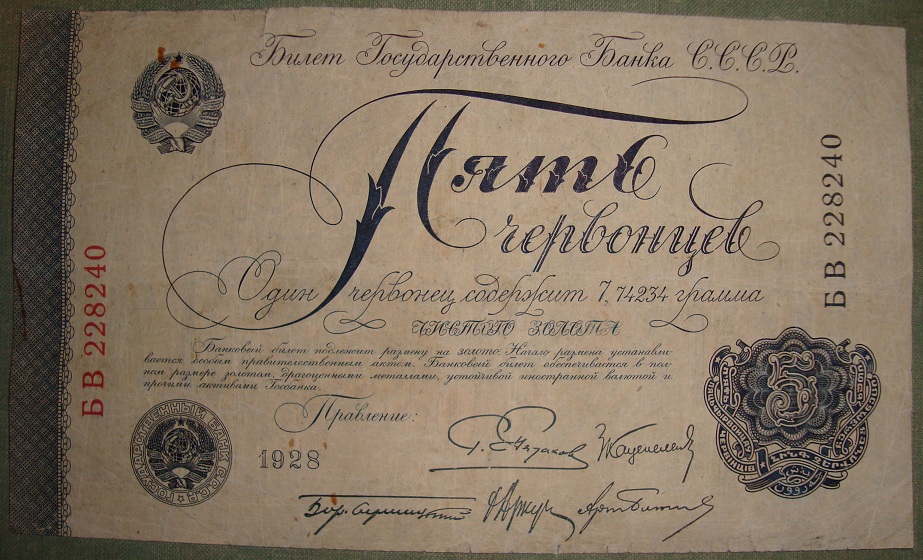 Билет Государственного Банка С.С.С.Р.
Пять
червонцев
Один червонец содержит 7,74234 грамма
чистого золота
Банковый билет подлежит размену на золото. Начало размена устанавли-
вается особым правительственным актом. Банковый билет обеспечивается в пол-
ном размере золотом, драгоценными металлами, устойчивой иностранной валютой и
прочими активами Госбанка.
Правление:
1928
БВ 228240
БВ 228240
ГОСУДАРСТВЕННЫЙ БАНК СССР
5